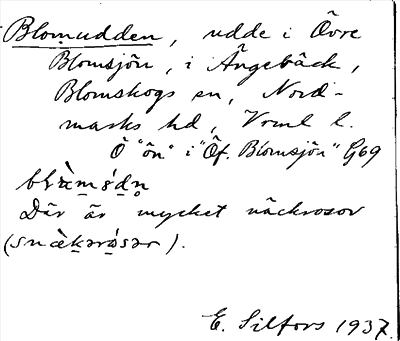 Blomudden, udde i Övre
Blomsjön, i Ängebäck,
Blomskogs sn, Nord-
marks hd, Vrml l.
Ö "ön" i "Öf. Blomsjön" G69
Där är mycket näckrosor
(snæ̀kərǿsər).
E. Silfors 1937.